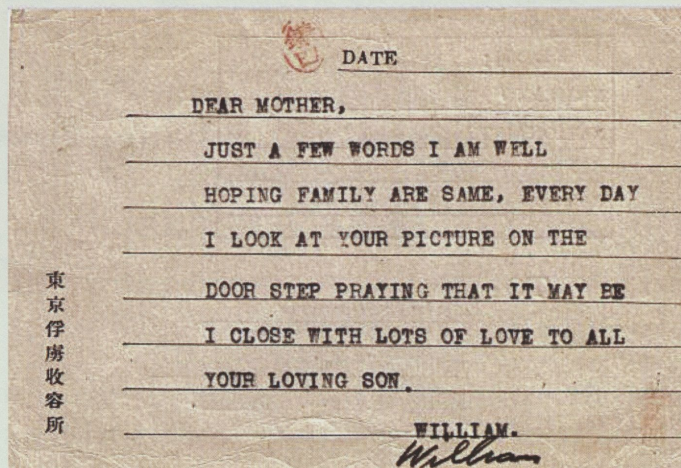 DATE
DEAR MOTHER,
JUST A FEW WORDS I AM WELL
HOPING FAMILY ARE SAME, EVERY DAY
I LOOK AT YOUR PICTURE ON THE
DOOR STEP PRAYING THAT IT MAY BE
I CLOSE WITH LOTS OF LOVE TO ALL
YOUR LOVING SON.
WILLIAM.
William
東京俘虜收容所